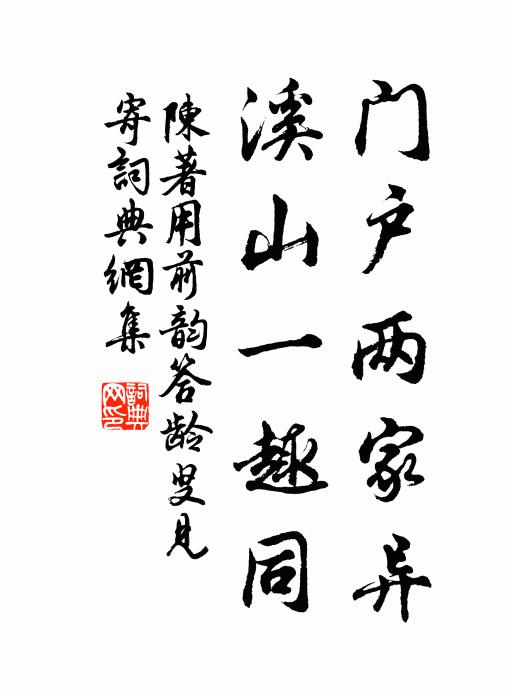 门户两家异
溪山一趣同
陳著用前韵答龄叟见
寄詞典網集
詞典
网印